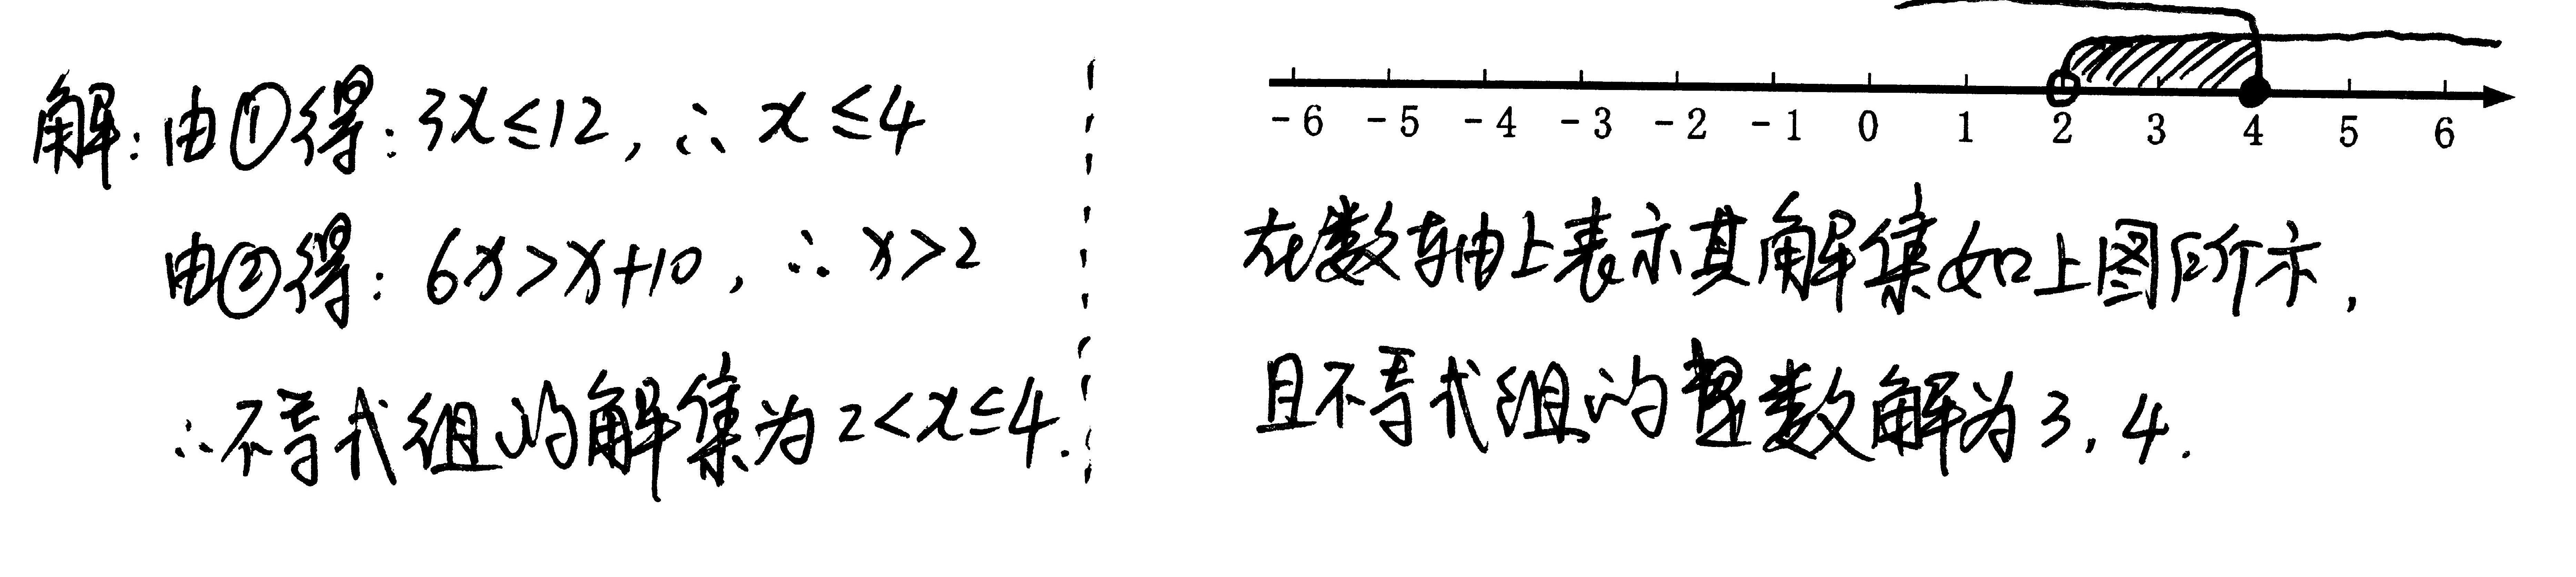 解：由①得：3x≤12，∴ x≤4
由②得：6x>x+10，∴ x>2
∴不等式组的解集为2<x≤4.
-6 -5 -4 -3 -2 -1 0 1 2 3 4 5 6
在数轴上表示其解集如上图所示，
且不等式组的整数解为3，4.